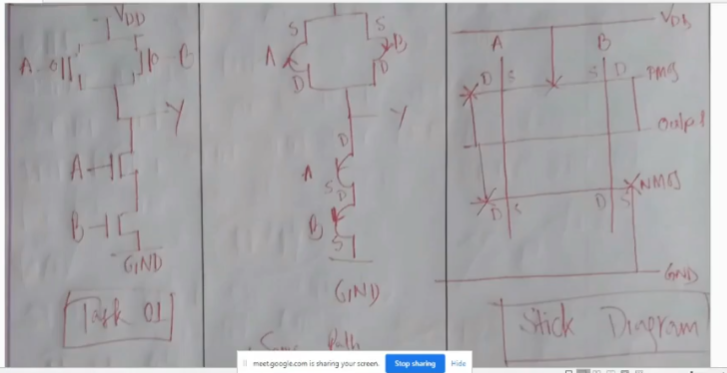 VDD
A
B
Y
A
B
GND
Task 01
S
S
A
B
D
D
Y
D
A
S
D
B
S
GND
VDD
A
B
D
S
S
D
PMOS
Output
NMOS
D
S
D
S
GND
Stick Diagram
Path
meet.google.com is sharing your screen.
Stop sharing
Hide